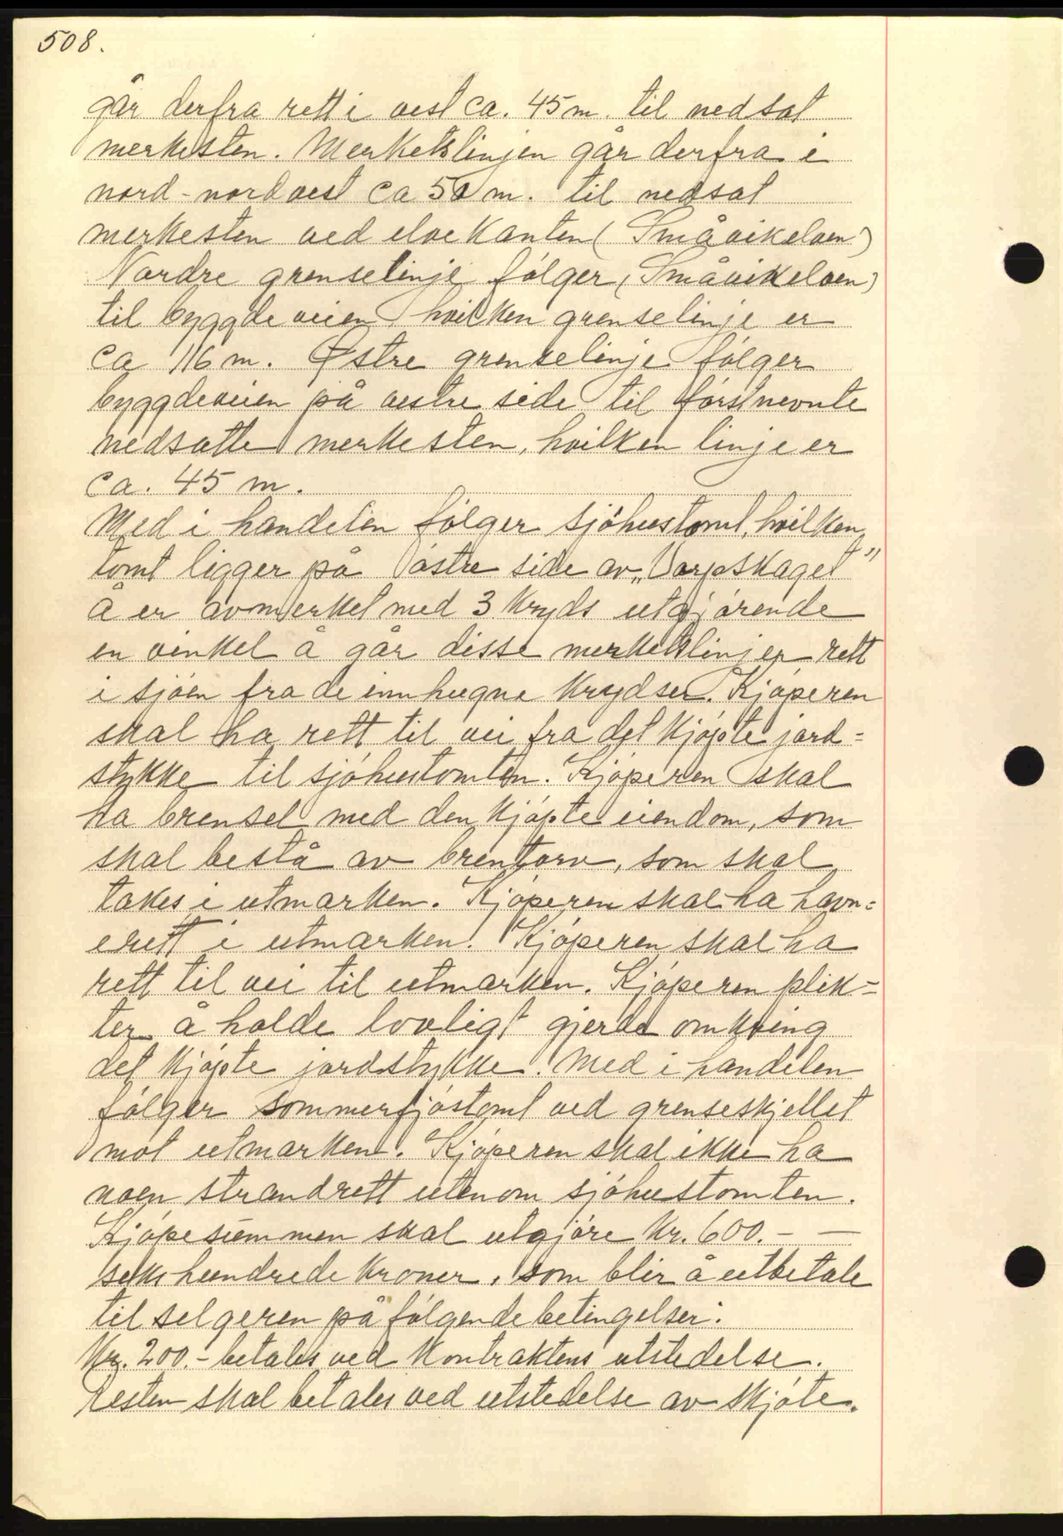 508.
går derfra rett i vest ca. 45 m. til nedsat
merkesten. Merkelslinjen går derfra i
nord-nordvest ca 50 m. til nedsat
merkesten ved elvekanten (Småvikelven)
Nordre grenselinje fölger (Småvikelven)
til byggdeveien, hvilken grenselinje er
ca 116 m. Østre grenselinje fölger
byggdeveien på vestre side til förstnevnte
nedsatte merkesten, hvilken linje er
ca. 45 m.
Med i handelen fölger sjöhustomt, hvilken
tomt ligger på östre side av „Varpskaget"
å er avmerket med 3 kryds utgjörende
en vinkel å går disse merkelslinjer rett
i sjöen fra de innhugne krydser. Kjöperen
skal ha rett til vei fra det kjöpte jord=
stykke til sjöhustomten. Kjöperen skal
ha brensel med den kjöpte eiendom, som
skal bestå av brenntorv, som skal
takes i utmarken. Kjöperen skal ha havn=
erett i utmarken. Kjöperen skal ha
rett til vei til utmarken. Kjöperen plik=
ter å holde lovligt gjerde omkring
det kjöpte jordstykke. Med i handelen
fölger sommerfjöstomt ved grenseskjellet
mot utmarken. Kjöperen skal ikke ha
noen strandrett utenom sjöhustomten.
Kjöpesummen skal utgjöre kr. 600.- —
sekshundrede kroner, som blir å utbetale
til selgeren på fölgende betingelser:
Kr. 200.- betales ved kontraktens utstedelse.
Resten skal betales ved utstedelse av skjöte.